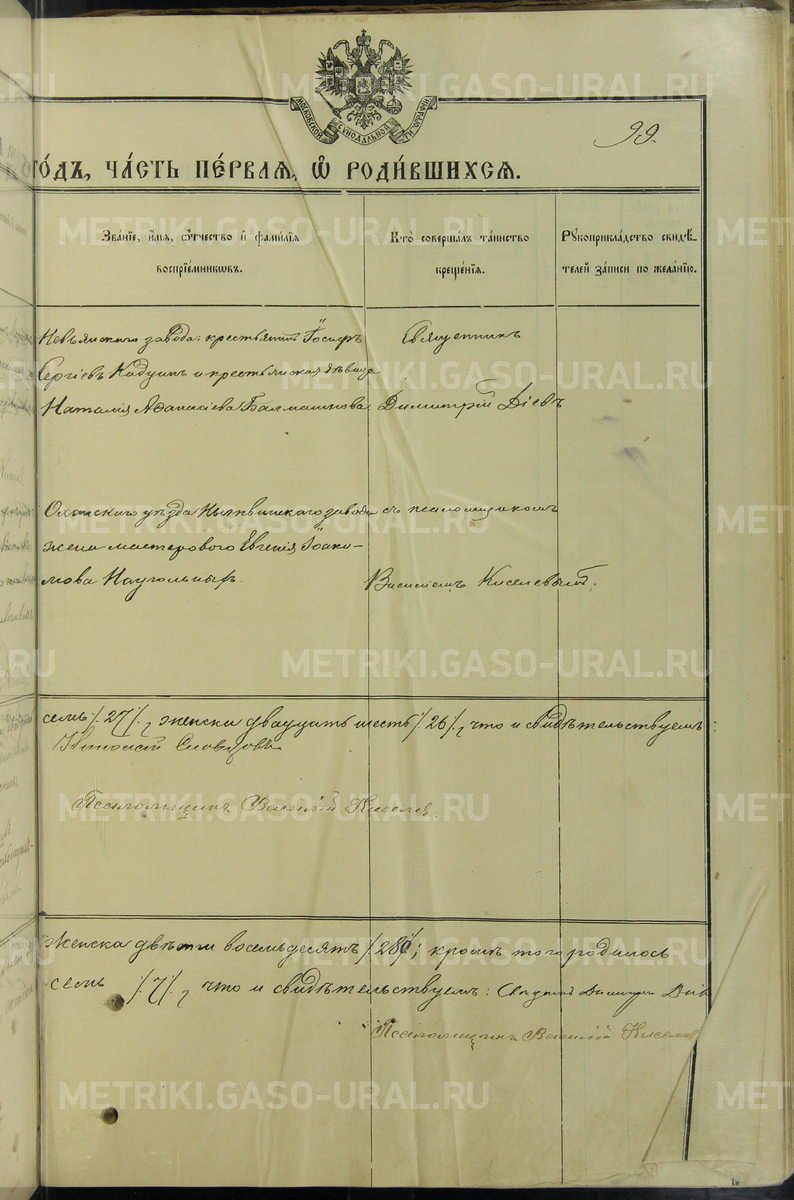 МОСКОВСКОЙ СѴНОДАЛЬНОЙ ТИПОГРАФІИ
99.
ГО́ДЪ, ЧА́СТЬ ПЕ́РВАЯ, Ѡ҆ РОДИ́ВШИХСЯ.
Зва́нїе, и҆́мя, ѻ҆́тчество и҆ фами́лїя
воспрїе́мникѡвъ.
Кто̀ соверша́лъ та́инство
креще́нїя.
Рꙋкоприкла́дство свидѣ́-
телей за́писи по жела́нїю.
Невьянскаго завода: крестьянинъ Іосифъ
Сергіевъ Кадушъ и крестьянская дѣвица
Наталія Аѳанасіева Балмашнова
Священникъ
Димитрій Діевъ
Оханскаго уѣзда Нытвинскаго завода
жена мастероваго Евгенія Іоаки-
мова Наугольныхъ.
съ псаломщикомъ
Василіемъ Киселевымъ.
семь /27/, женска двадцать шесть /26/, что и свидѣтельствуемъ:
Словцовъ
Псаломщикъ Василій Киселев
женска двѣсти восемьдесятъ /280/; кромѣ того родилось
семь /7/, что и свидѣтельствуемъ: Священ Димитрій Діев
Псаломщикъ Василій Киселев
METRIKI.GASO-URAL.RU